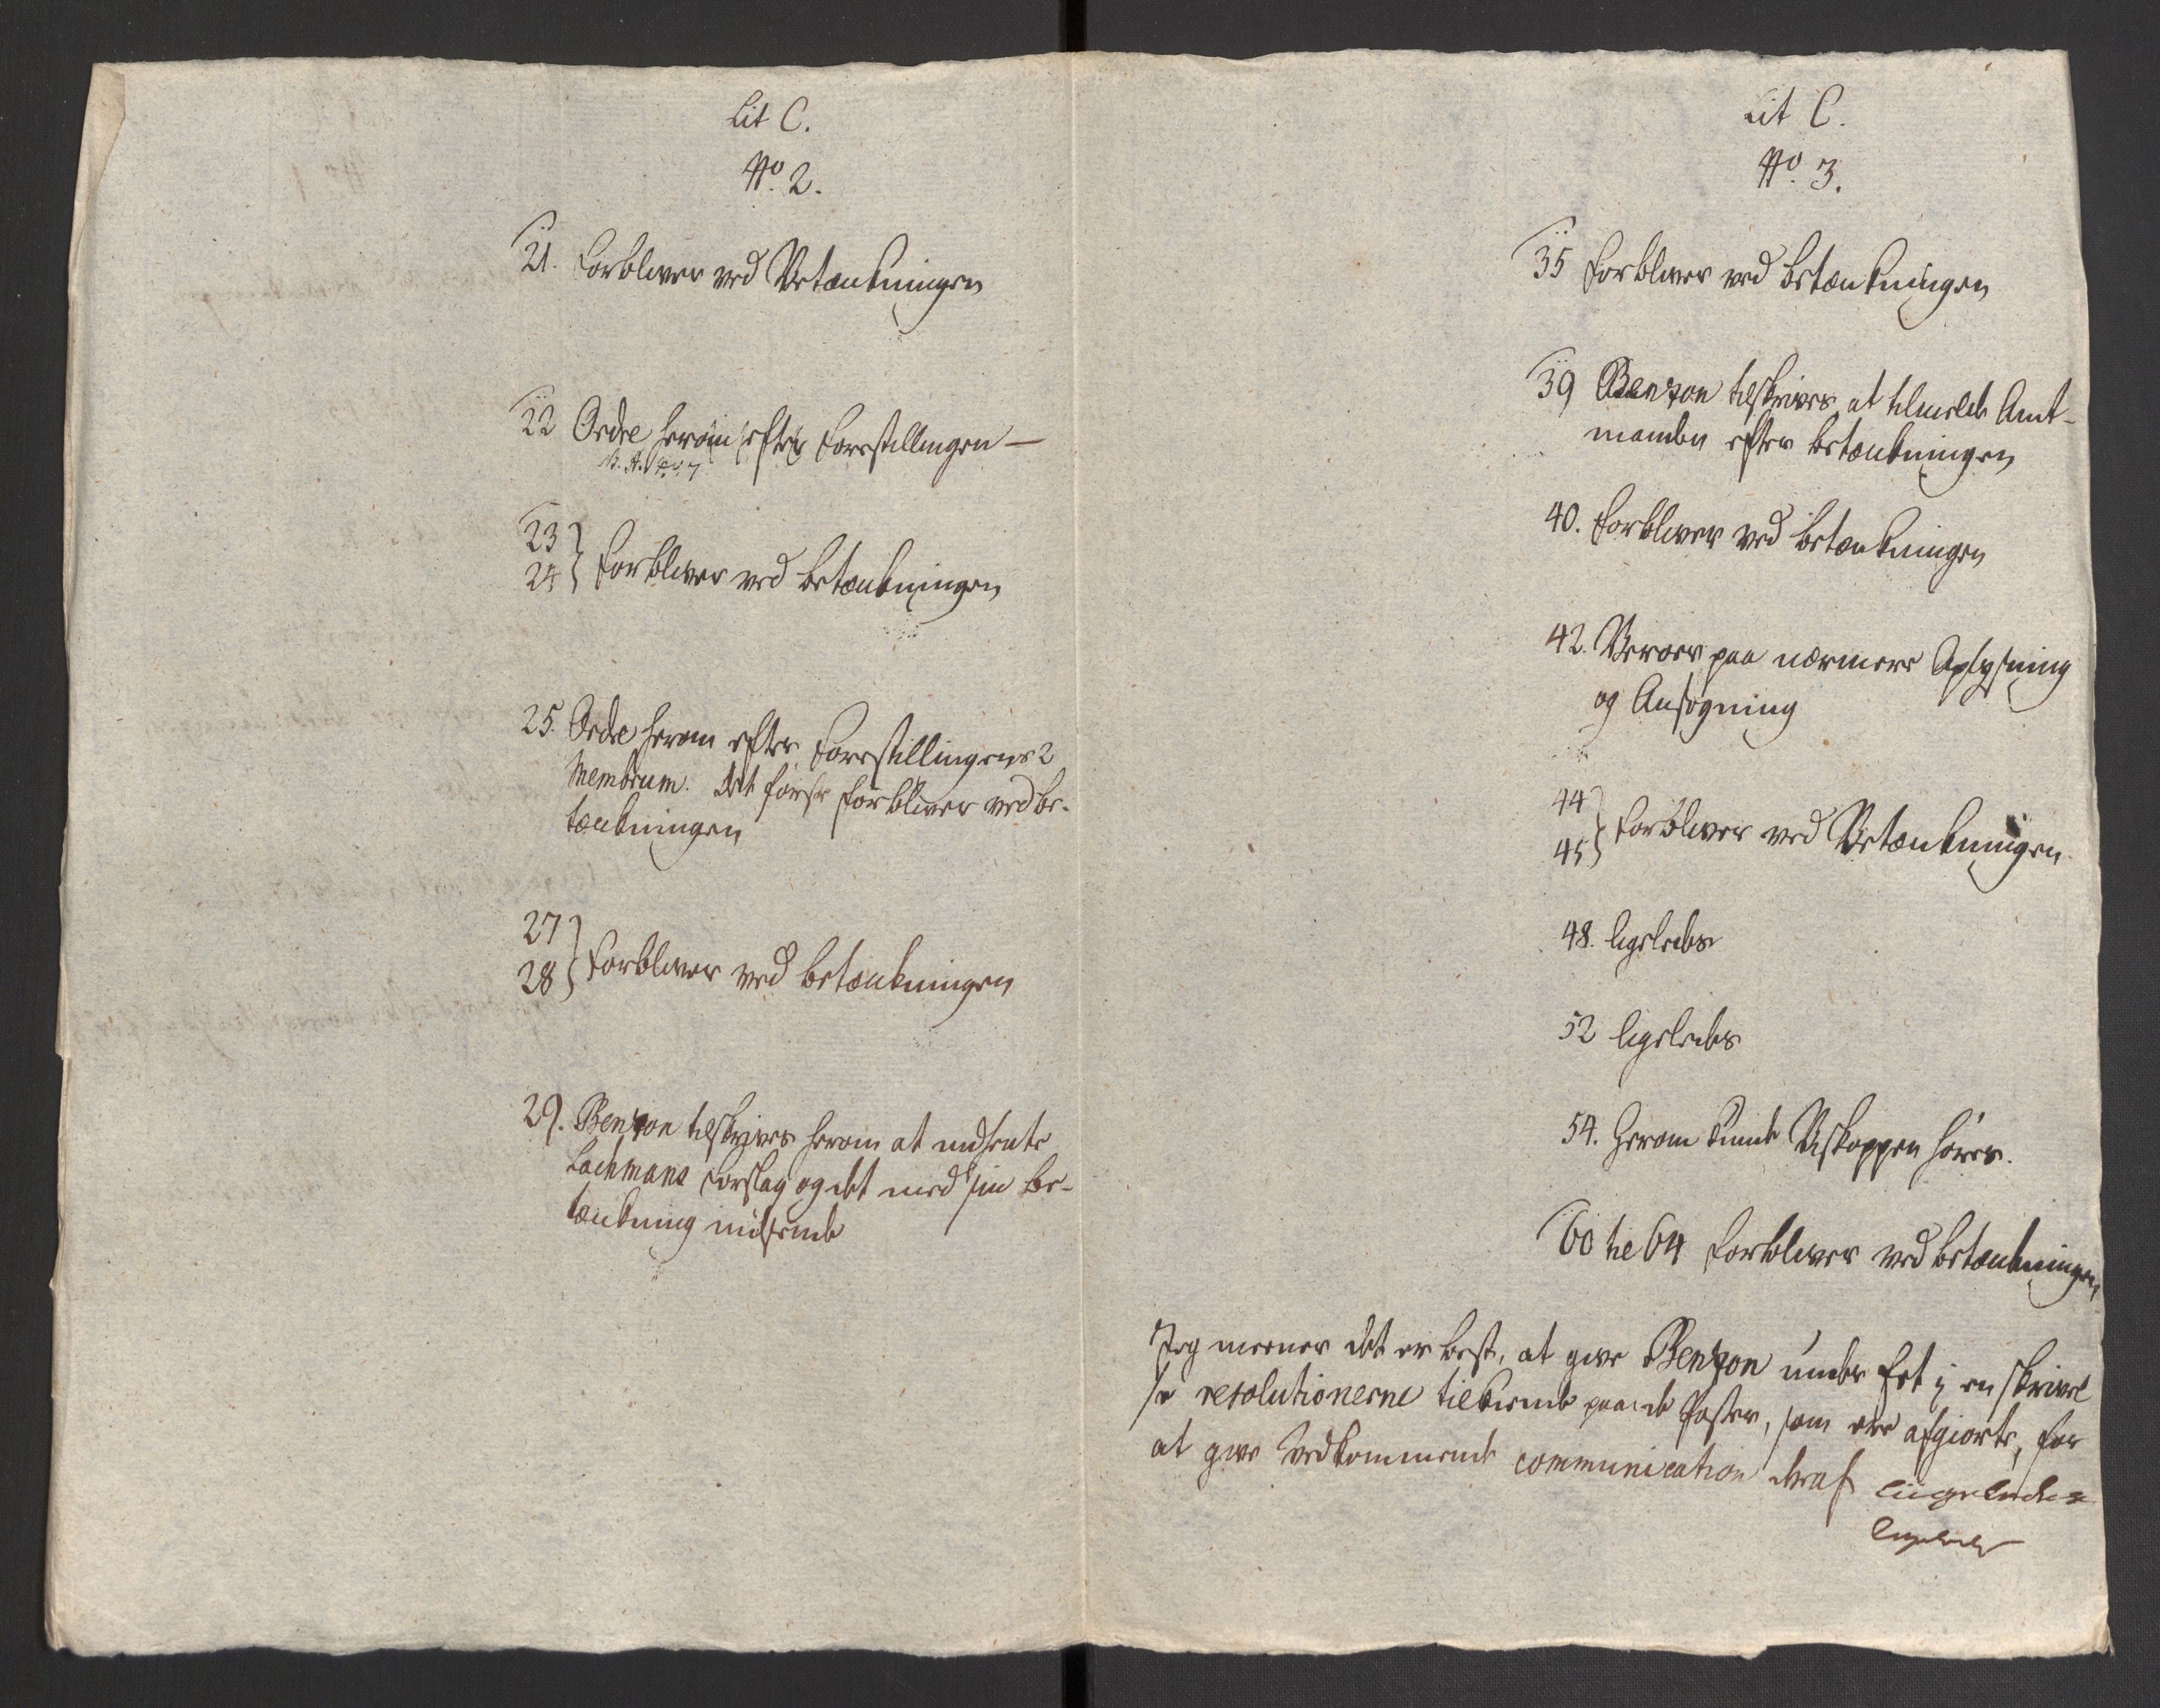 Lit C.
No. 2.
21. forbliver ved Betænkningen
22 Ordre herom efter forestillingen —
23
24 } forbliver ved betænkningen
25. Ordre herom efter forestillingens 2
Membrum. det første forbliver ved be-
tænkningen
27
28 } forbliver ved betænkningen
29. Benzon tilskrives herom at indhente
Lachmans forslag og det med sin be-
tænkning indsende
Lit C.
No. 3.
35 forbliver ved betænkningen
39 Benzon tilskrives at tilmelde Amt-
manden efter betænkningen
40. forbliver ved betænkningen
42. Beroer paa nærmere Oplysning
og Ansøgning
44
45 } forbliver ved Betænkningen
48. ligeledes
52 ligeledes
54. herom kunde Biskoppen høres.
60 til 64 forbliver ved betænkningen
Jeg meener det er best, at give Benzon under Eet i en skrivel
se resolutionerne tilkiende paa de Poster, som ere afgiorte, for
at give Vedkommende communication deraf liigeledes
ligeledes